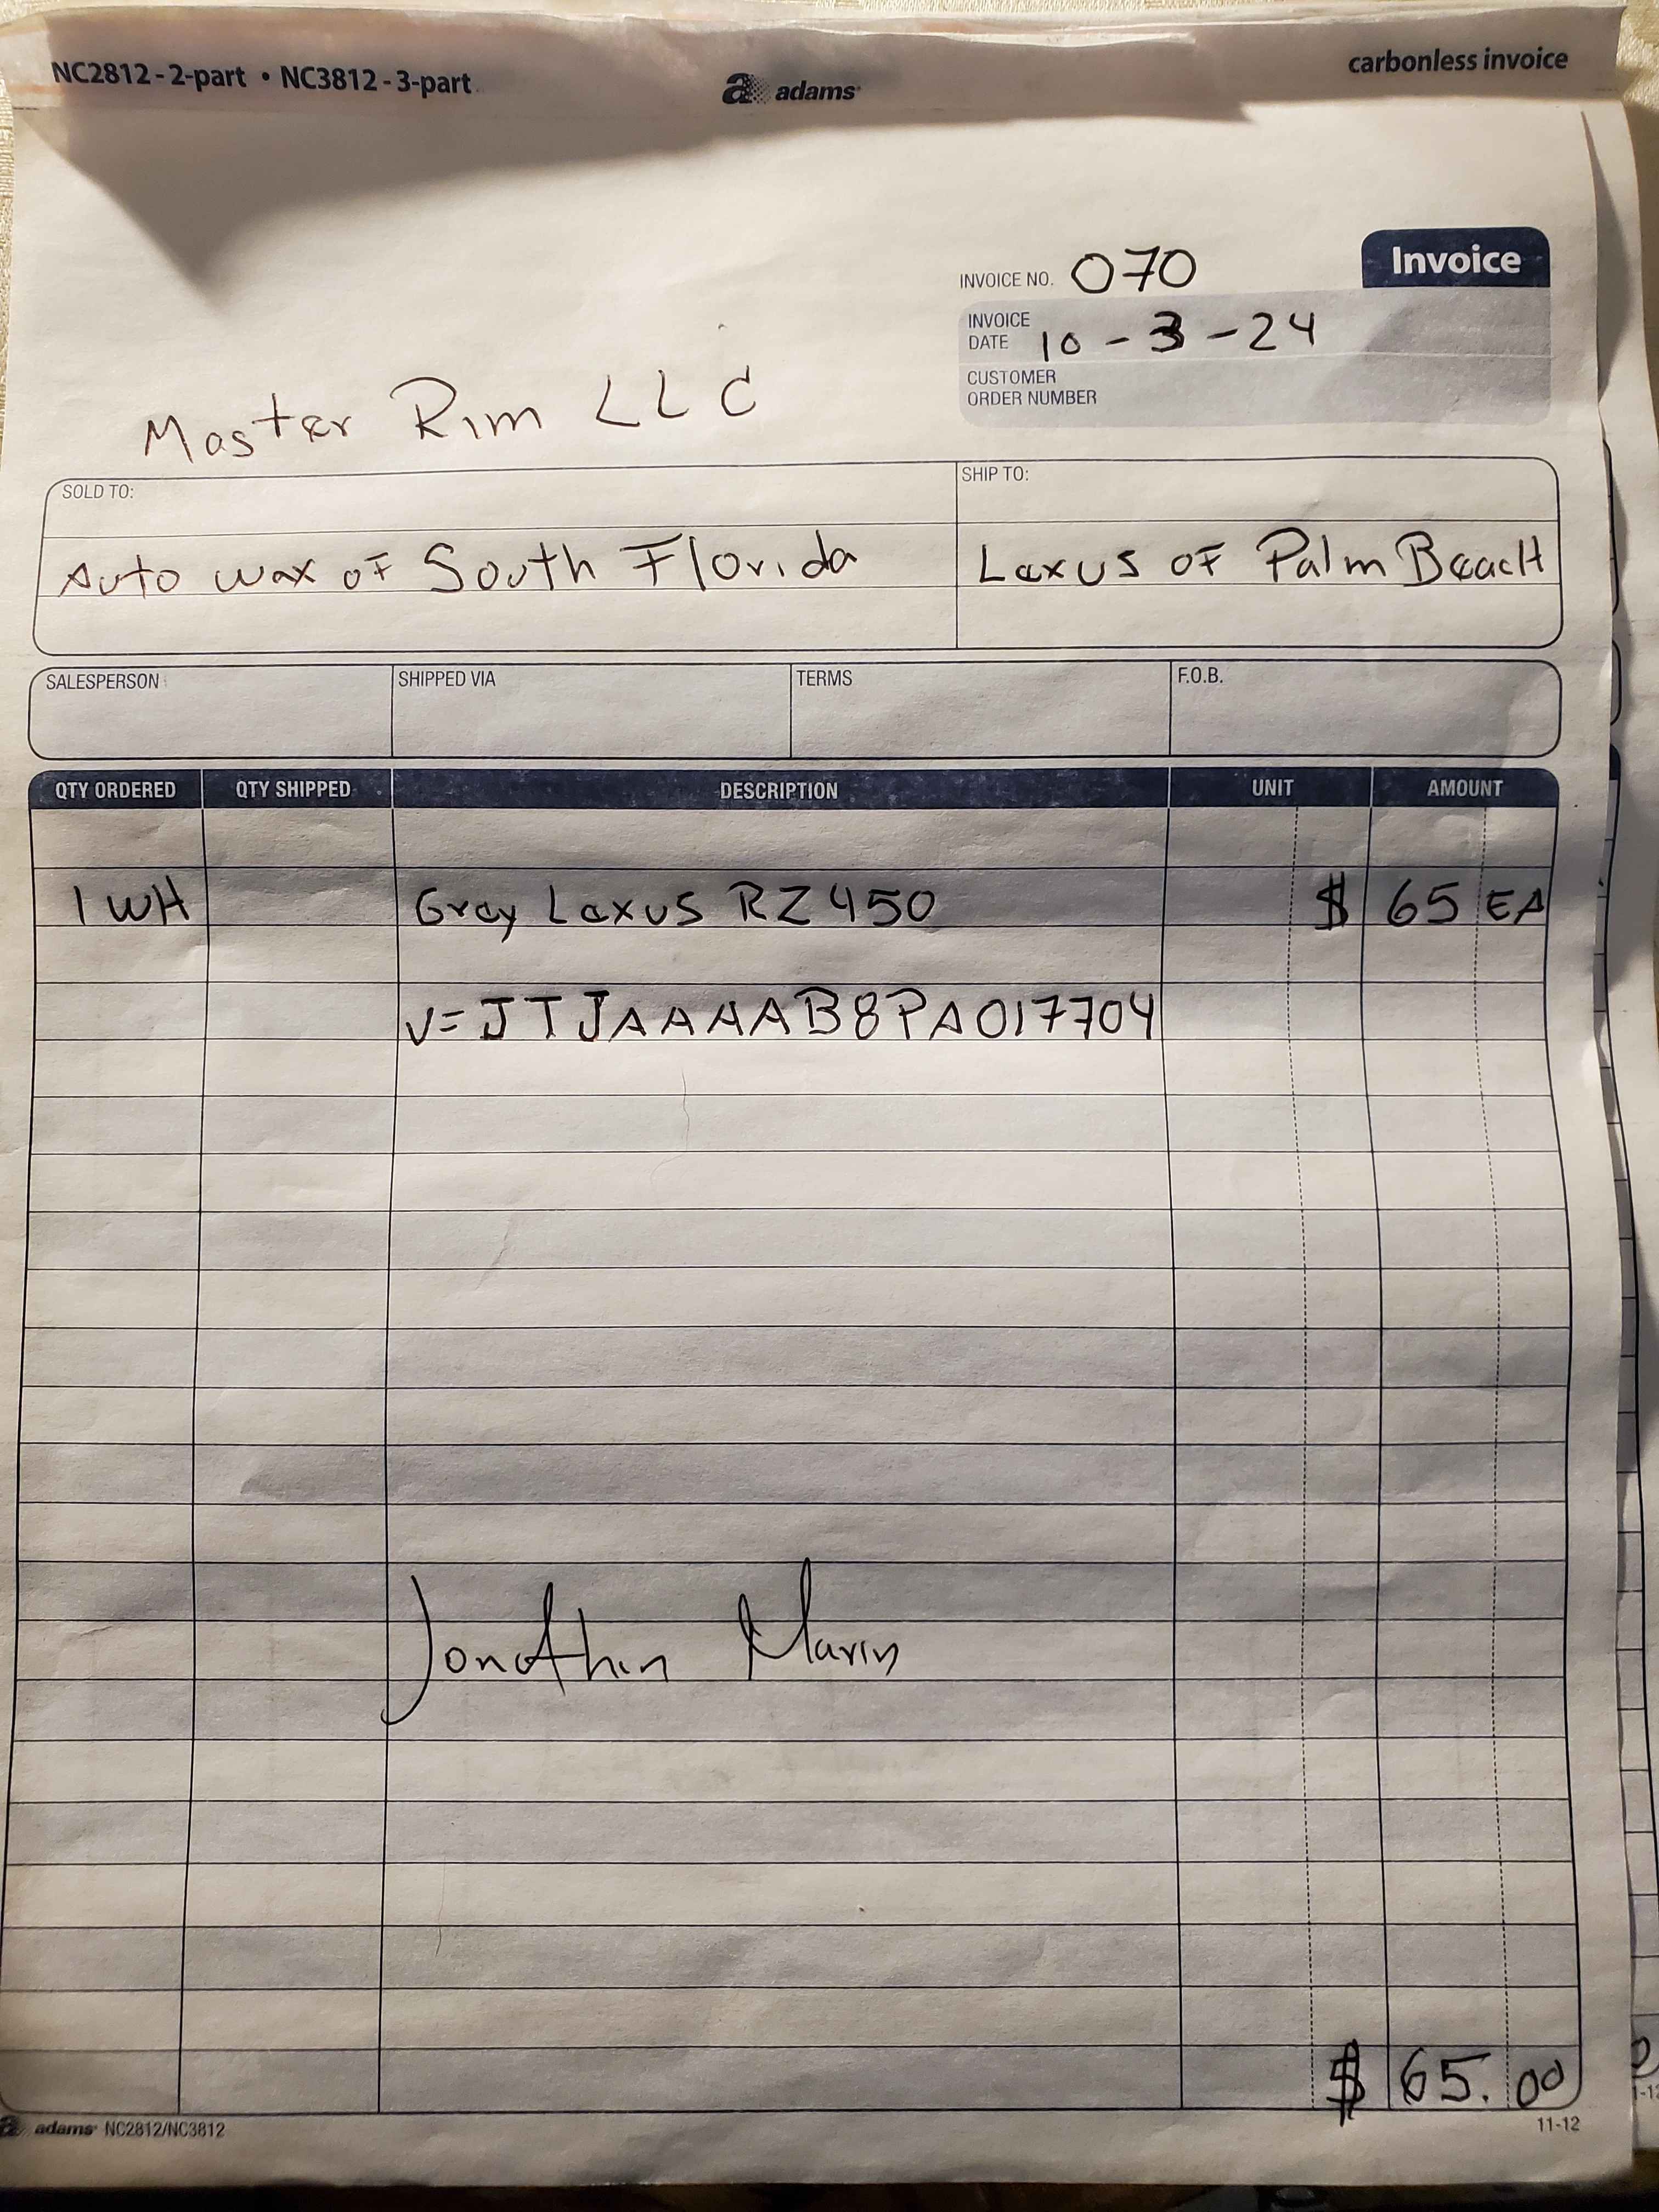 NC2812 - 2-part • NC3812 - 3-part
adams
carbonless invoice
Invoice
INVOICE NO. 070
INVOICE DATE 10-3-24
CUSTOMER ORDER NUMBER
Master Rim LLC
SOLD TO:
SHIP TO:
Auto wax of South Florida
Lexus of Palm BeacH
SALESPERSON
SHIPPED VIA
TERMS
F.O.B.
QTY ORDERED QTY SHIPPED DESCRIPTION UNIT AMOUNT
1 WH Grey Lexus RZ 450 $ 65 EA
V=JTJAAAAB8PA017704
Jonathin Marin
$ 65.00
adams NC2812/NC3812
11-12